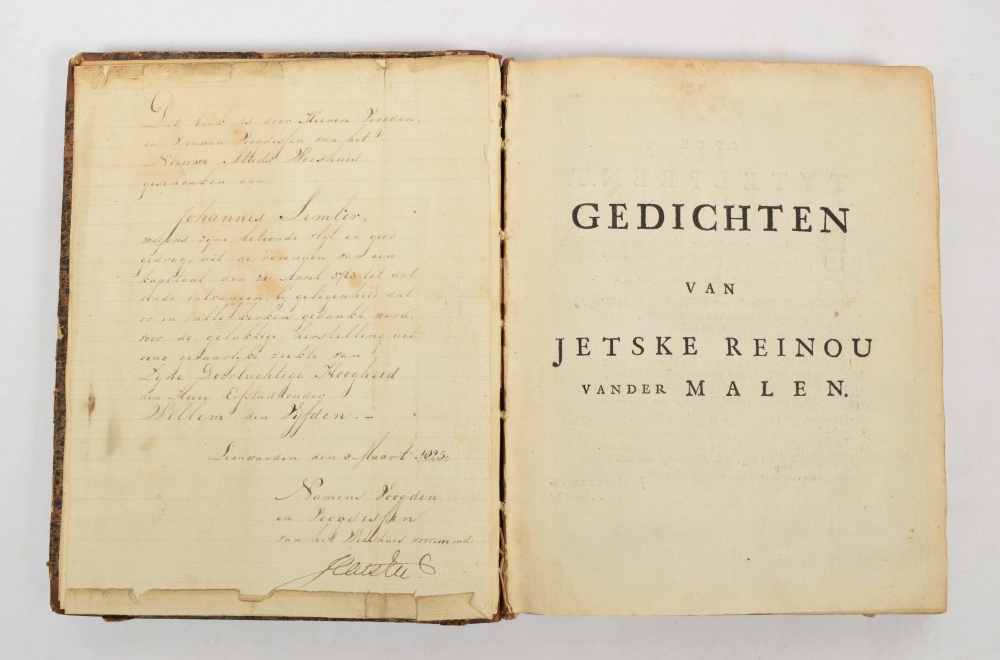 Dit boek is door Heeren Voogden,
en Vrouwen Voogdissen van het
Nieuwe Stads Weeshuis
geschonken aan
Johannes Semler,
wegens zijne betoonde vlyt en goed
gedrag, uit de van een
kapitaal den April 1763 tot dat
einde ontvangen, by gelegenheid dat
er in alle kerken gedankt werd,
voor de gelukkige herstelling uit
eene gevaarlyke ziekte van
Zyne Doorluchtige Hoogheid
den Heere Erfstadhouder
Willem den Vyfden. —
Leeuwarden den Maart
Namens Voogden
en Voogdessen
van het Weeshuis voornoemd.
OP DE
TYTELPRENT.
GEDICHTEN
VAN
JETSKE REINOU
VANDER MALEN.